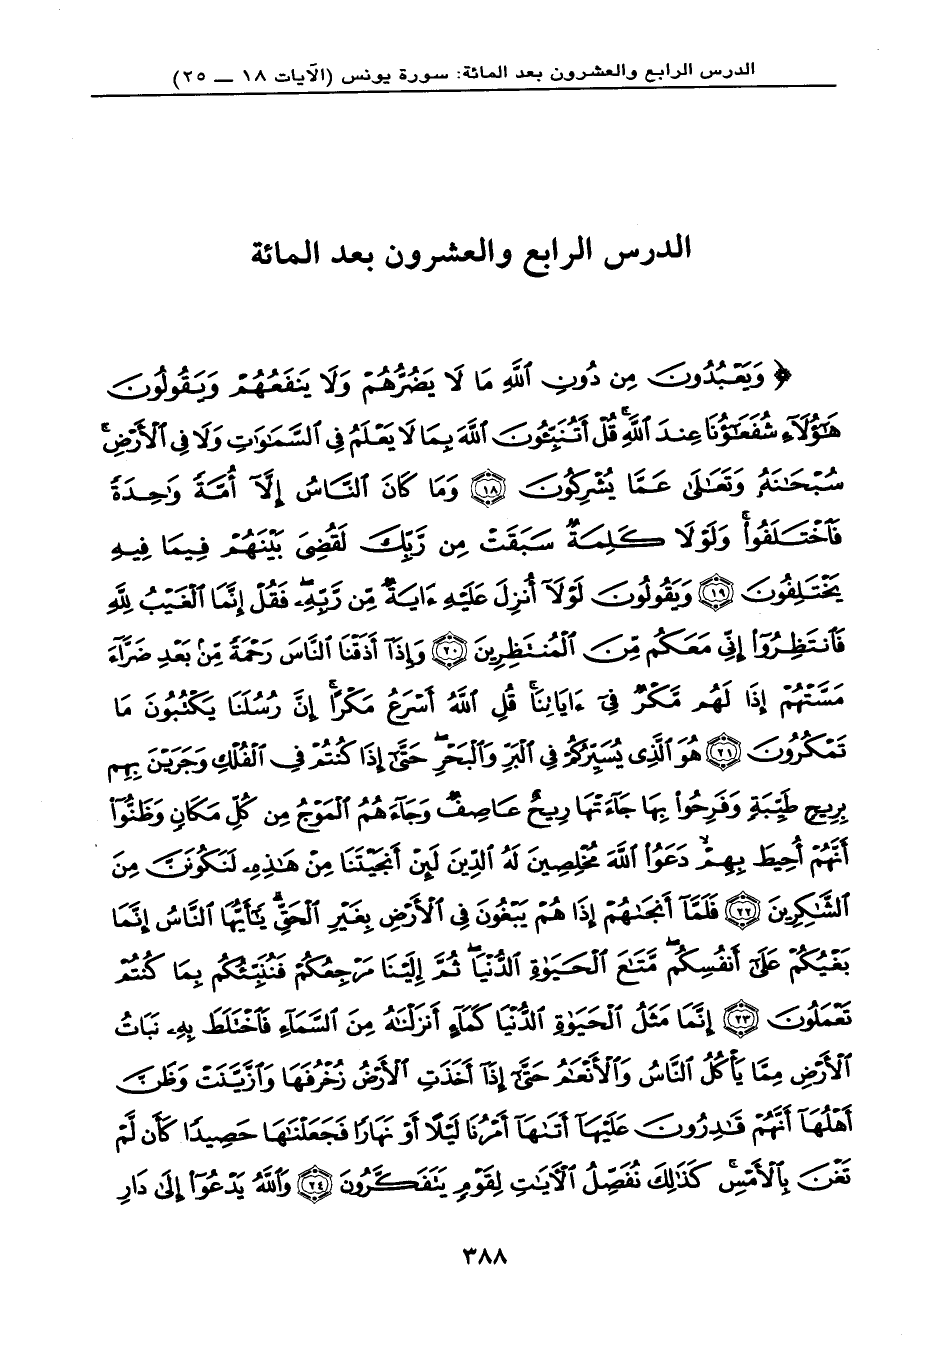 الدرس الرابع والعشرون بعد المائة: سورة يونس (الآيات ١٨ ــ ٢٥)
الدرس الرابع والعشرون بعد المائة
﴿ وَيَعْبُدُونَ مِن دُونِ ٱللَّهِ مَا لَا يَضُرُّهُمْ وَلَا يَنفَعُهُمْ وَيَقُولُونَ
هَٰٓؤُلَآءِ شُفَعَٰٓؤُنَا عِندَ ٱللَّهِۚ قُلْ أَتُنَبِّـُٔونَ ٱللَّهَ بِمَا لَا يَعْلَمُ فِى ٱلسَّمَٰوَٰتِ وَلَا فِى ٱلْأَرْضِۚ
سُبْحَٰنَهُۥ وَتَعَٰلَىٰ عَمَّا يُشْرِكُونَ ۝١٨ وَمَا كَانَ ٱلنَّاسُ إِلَّآ أُمَّةً وَٰحِدَةً
فَٱخْتَلَفُوا۟ۚ وَلَوْلَا كَلِمَةٌ سَبَقَتْ مِن رَّبِّكَ لَقُضِىَ بَيْنَهُمْ فِيمَا فِيهِ
يَخْتَلِفُونَ ۝١٩ وَيَقُولُونَ لَوْلَآ أُنزِلَ عَلَيْهِ ءَايَةٌ مِّن رَّبِّهِۦۖ فَقُلْ إِنَّمَا ٱلْغَيْبُ لِلَّهِ
فَٱنتَظِرُوٓا۟ إِنِّى مَعَكُم مِّنَ ٱلْمُنتَظِرِينَ ۝٢٠ وَإِذَآ أَذَقْنَا ٱلنَّاسَ رَحْمَةً مِّنۢ بَعْدِ ضَرَّآءَ
مَسَّتْهُمْ إِذَا لَهُم مَّكْرٌ فِىٓ ءَايَاتِنَاۚ قُلِ ٱللَّهُ أَسْرَعُ مَكْرًاۚ إِنَّ رُسُلَنَا يَكْتُبُونَ مَا
تَمْكُرُونَ ۝٢١ هُوَ ٱلَّذِى يُسَيِّرُكُمْ فِى ٱلْبَرِّ وَٱلْبَحْرِۖ حَتَّىٰٓ إِذَا كُنتُمْ فِى ٱلْفُلْكِ وَجَرَيْنَ بِهِم
بِرِيحٍ طَيِّبَةٍ وَفَرِحُوا۟ بِهَا جَآءَتْهَا رِيحٌ عَاصِفٌ وَجَآءَهُمُ ٱلْمَوْجُ مِن كُلِّ مَكَانٍ وَظَنُّوٓا۟
أَنَّهُمْ أُحِيطَ بِهِمْۙ دَعَوُا۟ ٱللَّهَ مُخْلِصِينَ لَهُ ٱلدِّينَ لَئِنْ أَنجَيْتَنَا مِنْ هَٰذِهِۦ لَنَكُونَنَّ مِنَ
ٱلشَّٰكِرِينَ ۝٢٢ فَلَمَّآ أَنجَىٰهُمْ إِذَا هُمْ يَبْغُونَ فِى ٱلْأَرْضِ بِغَيْرِ ٱلْحَقِّۗ يَٰٓأَيُّهَا ٱلنَّاسُ إِنَّمَا
بَغْيُكُمْ عَلَىٰٓ أَنفُسِكُمۖ مَّتَٰعَ ٱلْحَيَوٰةِ ٱلدُّنْيَاۖ ثُمَّ إِلَيْنَا مَرْجِعُكُمْ فَنُنَبِّئُكُم بِمَا كُنتُمْ
تَعْمَلُونَ ۝٢٣ إِنَّمَا مَثَلُ ٱلْحَيَوٰةِ ٱلدُّنْيَا كَمَآءٍ أَنزَلْنَٰهُ مِنَ ٱلسَّمَآءِ فَٱخْتَلَطَ بِهِۦ نَبَاتُ
ٱلْأَرْضِ مِمَّا يَأْكُلُ ٱلنَّاسُ وَٱلْأَنْعَٰمُ حَتَّىٰٓ إِذَآ أَخَذَتِ ٱلْأَرْضُ زُخْرُفَهَا وَٱزَّيَّنَتْ وَظَنَّ
أَهْلُهَآ أَنَّهُمْ قَٰدِرُونَ عَلَيْهَآ أَتَىٰهَآ أَمْرُنَا لَيْلًا أَوْ نَهَارًا فَجَعَلْنَٰهَا حَصِيدًا كَأَن لَّمْ
تَغْنَ بِٱلْأَمْسِۚ كَذَٰلِكَ نُفَصِّلُ ٱلْءَايَٰتِ لِقَوْمٍ يَتَفَكَّرُونَ ۝٢٤ وَٱللَّهُ يَدْعُوٓا۟ إِلَىٰ دَارِ
٣٨٨